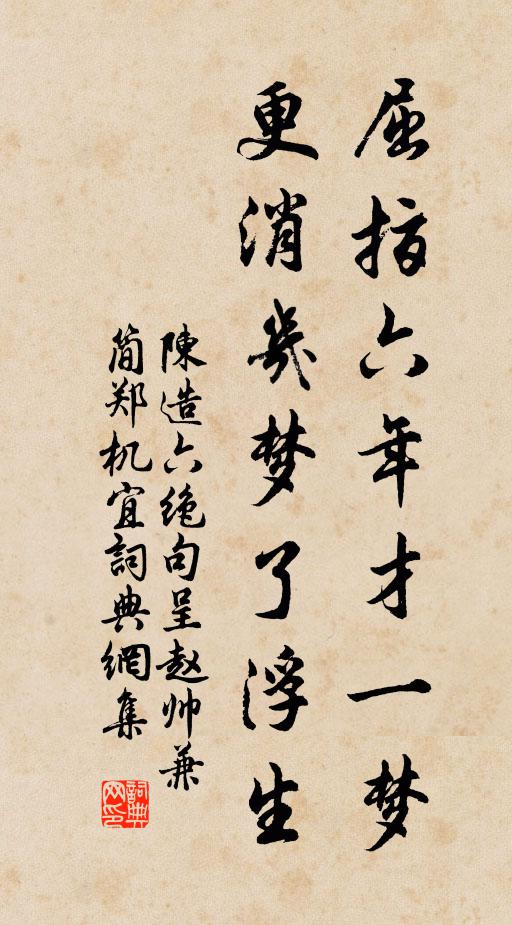 屈指六年才一梦
更消幾梦了浮生
陳造六绝句呈赵帅兼
简郑机宜詞典網集
詞典网印